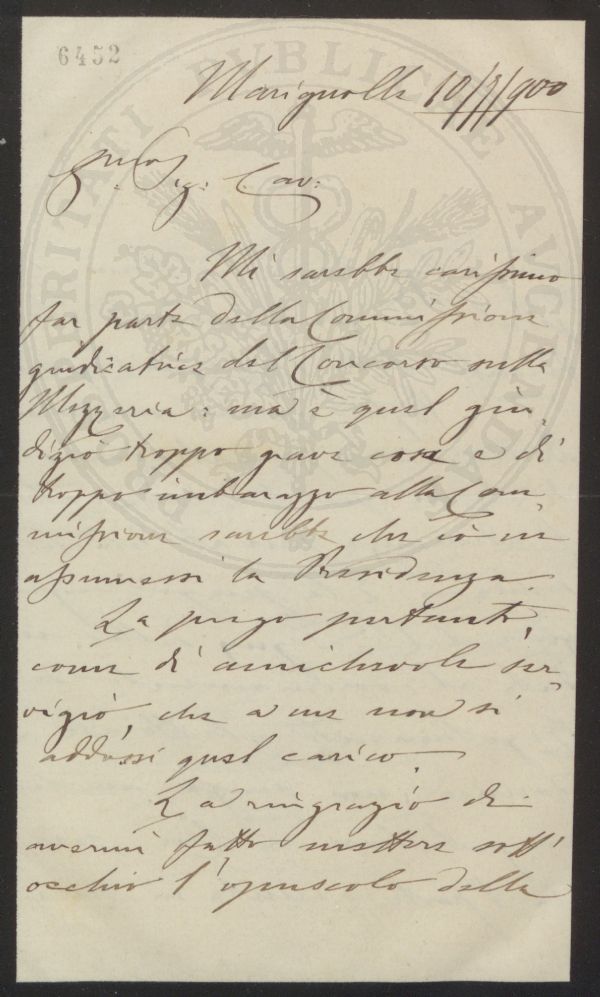 6452
PROSPERITATI PUBLICAE AUGENDAE
Marignolle 10/9/900
Sig: Cav:
Mi sarebbe carissimo
far parte della Commissione
giudicatrice del Concorso sulla
Mezzeria: ma è quel giu
dizio troppo grave cosa e di
troppo imbarazzo alla Com
missione sarebbe che io ne
assumessi la Presidenza.
La prego pertanto,
come di amichevole ser
vigio, che a me non si
addossi quel carico.
La ringrazio di
avermi fatto mettere sott'
occhio l'opuscolo della